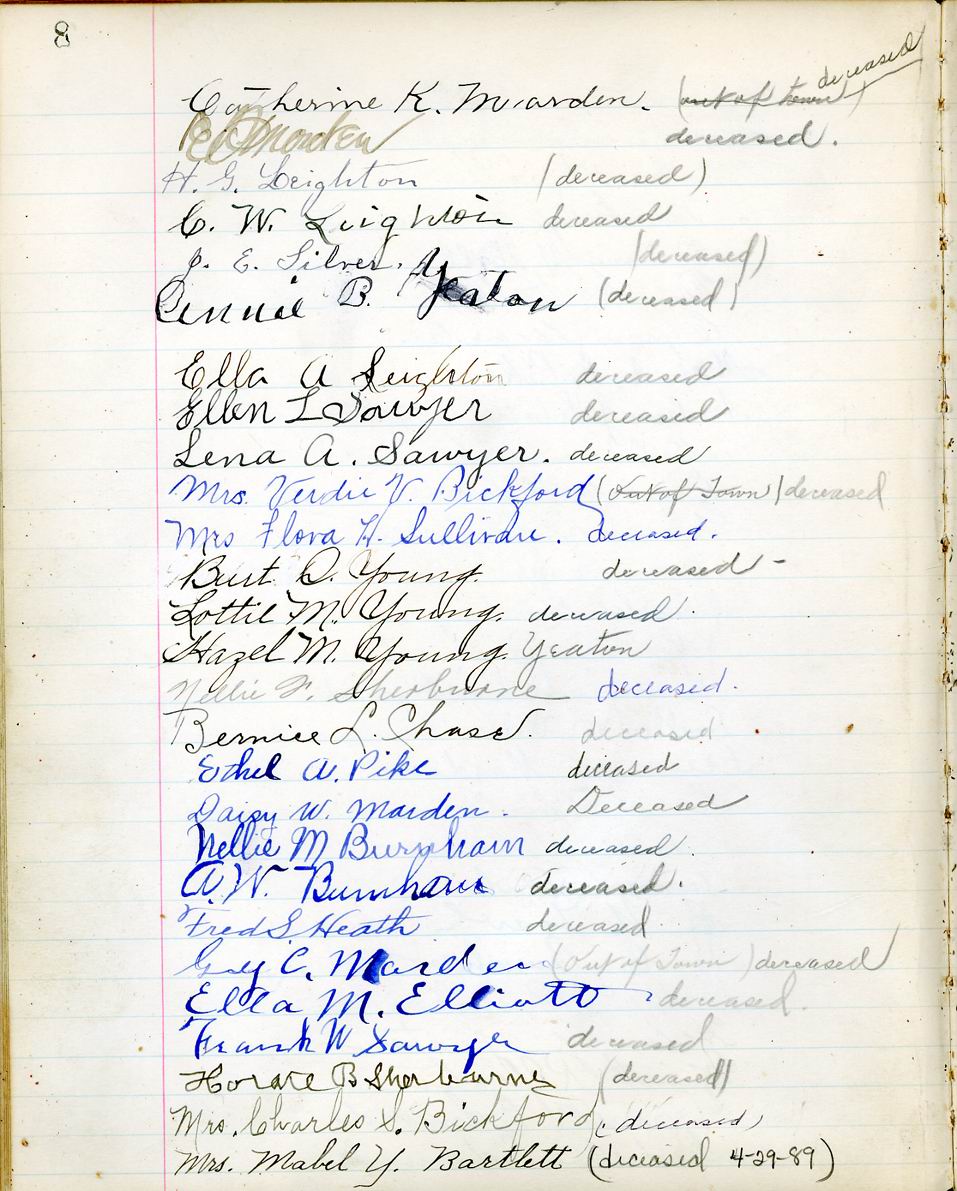 8
Catherine K. Marden. (out of town) deceased
Marden deceased.
H. G. Leighton (deceased)
C. W. Leighton deceased
J. E. Silver. (deceased)
Annie B. Yeaton (deceased)
Ella A Leighton deceased
Ellen L Sawyer deceased
Lena A. Sawyer. deceased
Mrs. Verdie V. Bickford (Out of Town) deceased
Mrs Flora H. Sullivan. deceased.
Burt D. Young. deceased -
Lottie M. Young. deceased.
Hazel M. Young. Yeaton
Nellie F. Sherburne deceased.
Bernice L. Chase. deceased
Ethel A. Pike deceased
Daisy W. Marden. Deceased
Nellie M Burnham deceased.
A. W. Burnham deceased.
Fred S. Heath deceased
Guy C. Marden (Out of Town) deceased
Ella M. Elliott deceased.
Frank W Sawyer deceased
Horace B Sherburne (deceased)
Mrs. Charles S. Bickford. (deceased)
Mrs. Mabel Y. Bartlett (deceased 4-29-89)